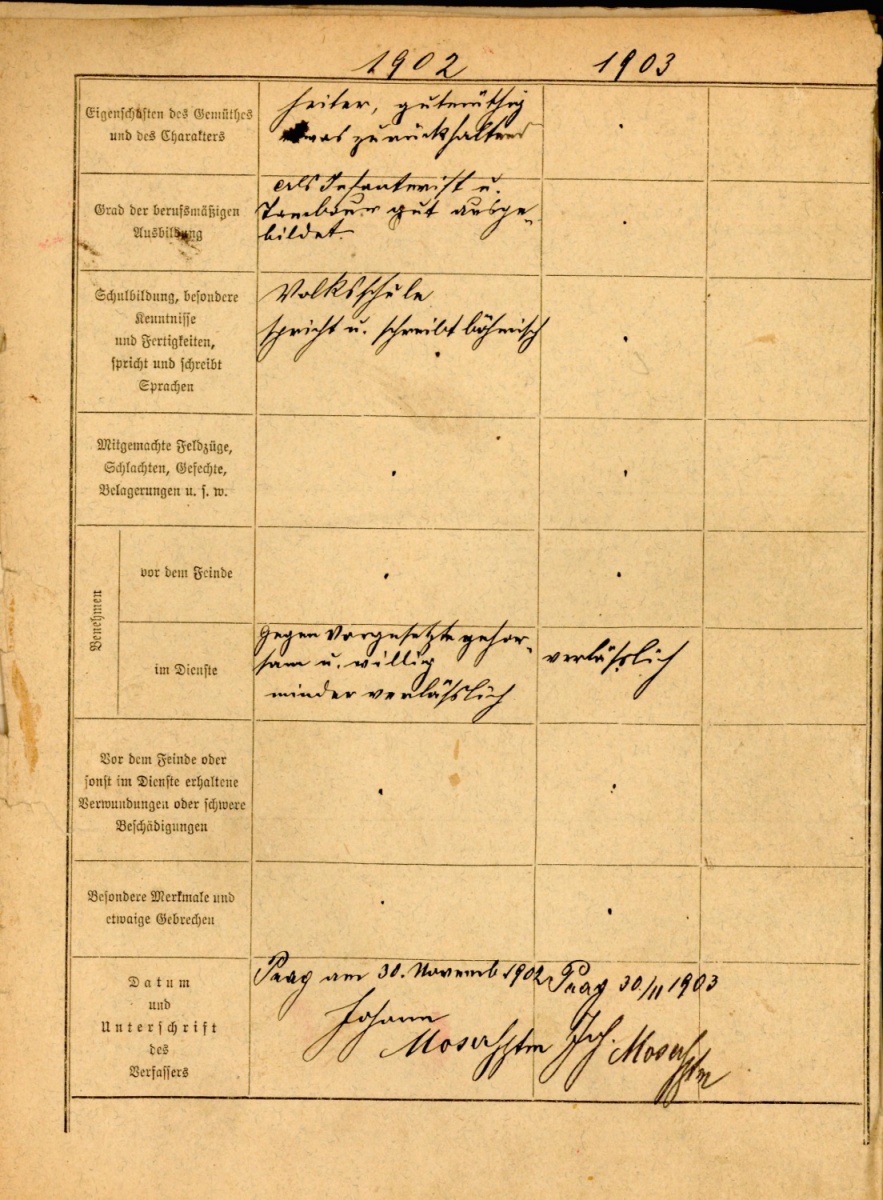 1902 1903
Eigenschaften des Gemüthes
und des Charakters
heiter, gutmüthig
etwas zurückhaltend
Grad der berufsmäßigen
Ausbildung
Als Infanterist u.
Tambour gut ausge-
bildet.
Schulbildung, besondere
Kenntnisse
und Fertigkeiten,
spricht und schreibt
Sprachen
Volksschule
spricht u. schreibt böhmisch
Mitgemachte Feldzüge,
Schlachten, Gefechte,
Belagerungen u. s. w.
Benehmen
vor dem Feinde
im Dienste
Gegen Vorgesetzte gehor-
sam u. willig
minder verläßlich
verläßlich
Vor dem Feinde oder
sonst im Dienste erhaltene
Verwundungen oder schwere
Beschädigungen
Besondere Merkmale und
etwaige Gebrechen
Datum
und
Unterschrift
des
Verfassers
Prag am 30. Novemb. 1902
Johann
Moser Hptm
Prag 30/11 1903
Joh. Moser
Hptm